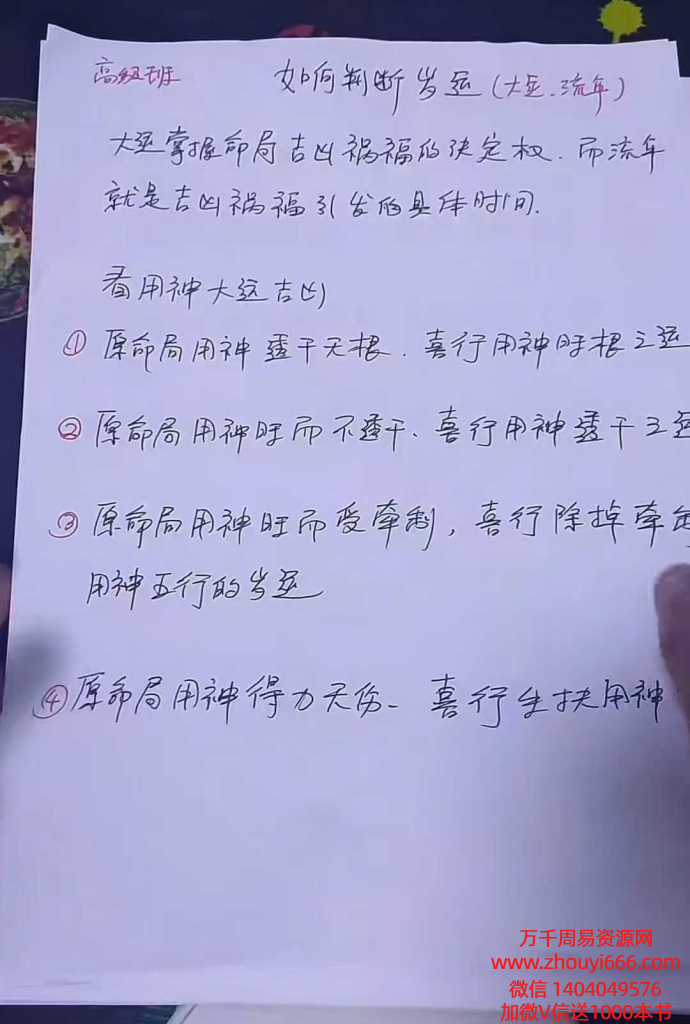 高级班
如何判断岁运(大运.流年)
大运掌握命局吉凶祸福的决定权.而流年
就是吉凶祸福引发的具体时间.
看用神大运吉凶
① 原命局用神透干无根.喜行用神旺根之运
② 原命局用神旺而不透干、喜行用神透干之运
③ 原命局用神旺而受牵制,喜行除掉牵制
用神五行的岁运
④ 原命局用神得力无伤_喜行生扶用神
万千周易资源网
www.zhouyi666.com
微信 1404049576
加微V信送1000本书